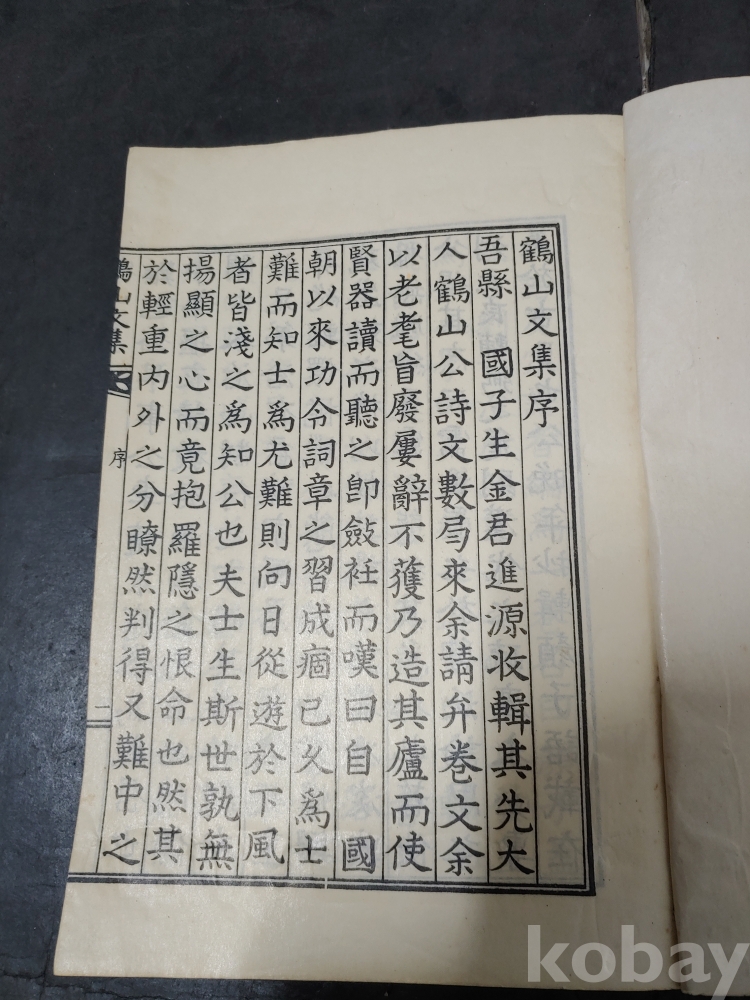 鶴山文集序
吾縣 國子生金君進源收輯其先大
人鶴山公詩文數局來余請弁卷文余
以老耄旨廢屢辭不獲乃造其廬而使
賢器讀而聽之卽斂衽而嘆曰自 國
朝以來功令詞章之習成痼已久爲士
難而知士爲尤難則向日從遊於下風
者皆淺之爲知公也夫士生斯世孰無
揚顯之心而竟抱羅隱之恨命也然其
於輕重内外之分瞭然判得又難中之
鶴山文集 序 二
kobay